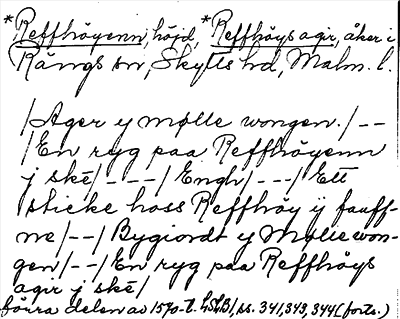 *Reffhöyenn, höjd, *Reffhöys agir, åker i
Rängs sn, Skytts hd, Malm. l.
/Ager y mølle wongen./--
/En ryg paa Reffhöyenn
j ské/---/Engh/---/Ett
sticke hoss Reffhöy ÿ fauff-
ne/--/Bygiordt y Mølle won-
gen/--/En ryg paa Reffhöys
agir j ské/
förra delen av 1570-t. LSLB1, ss. 341, 343, 344 (forts.)